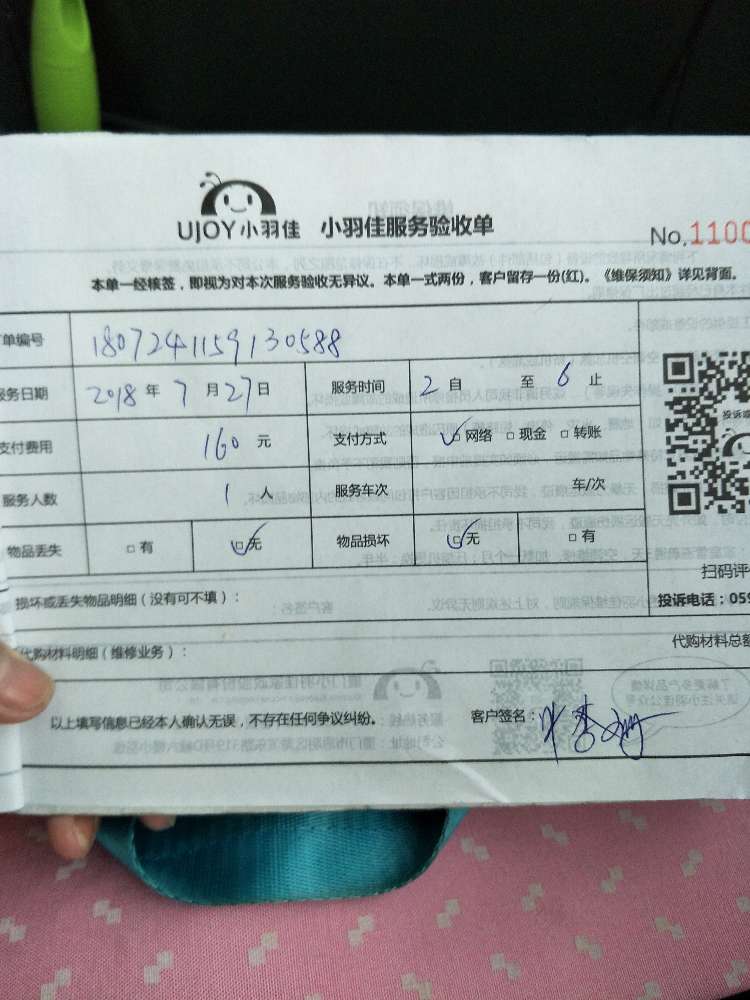 UJOY小羽佳 小羽佳服务验收单
No.1100
本单一经核签，即视为对本次服务验收无异议。本单一式两份，客户留存一份(红)。《维保须知》详见背面。
单编号 1807241159130588
服务日期 2018 年 7 月 27 日 服务时间 2 自 至 6 止
支付费用 160 元 支付方式 网络 现金 转账
服务人数 1 人 服务车次 车/次
物品丢失 有 无 物品损坏 无 有
扫码评
损坏或丢失物品明细（没有可不填）：
投诉电话：059
代购材料明细（维修业务）：
代购材料总额
以上填写信息已经本人确认无误，不存在任何争议纠纷。
客户签名：